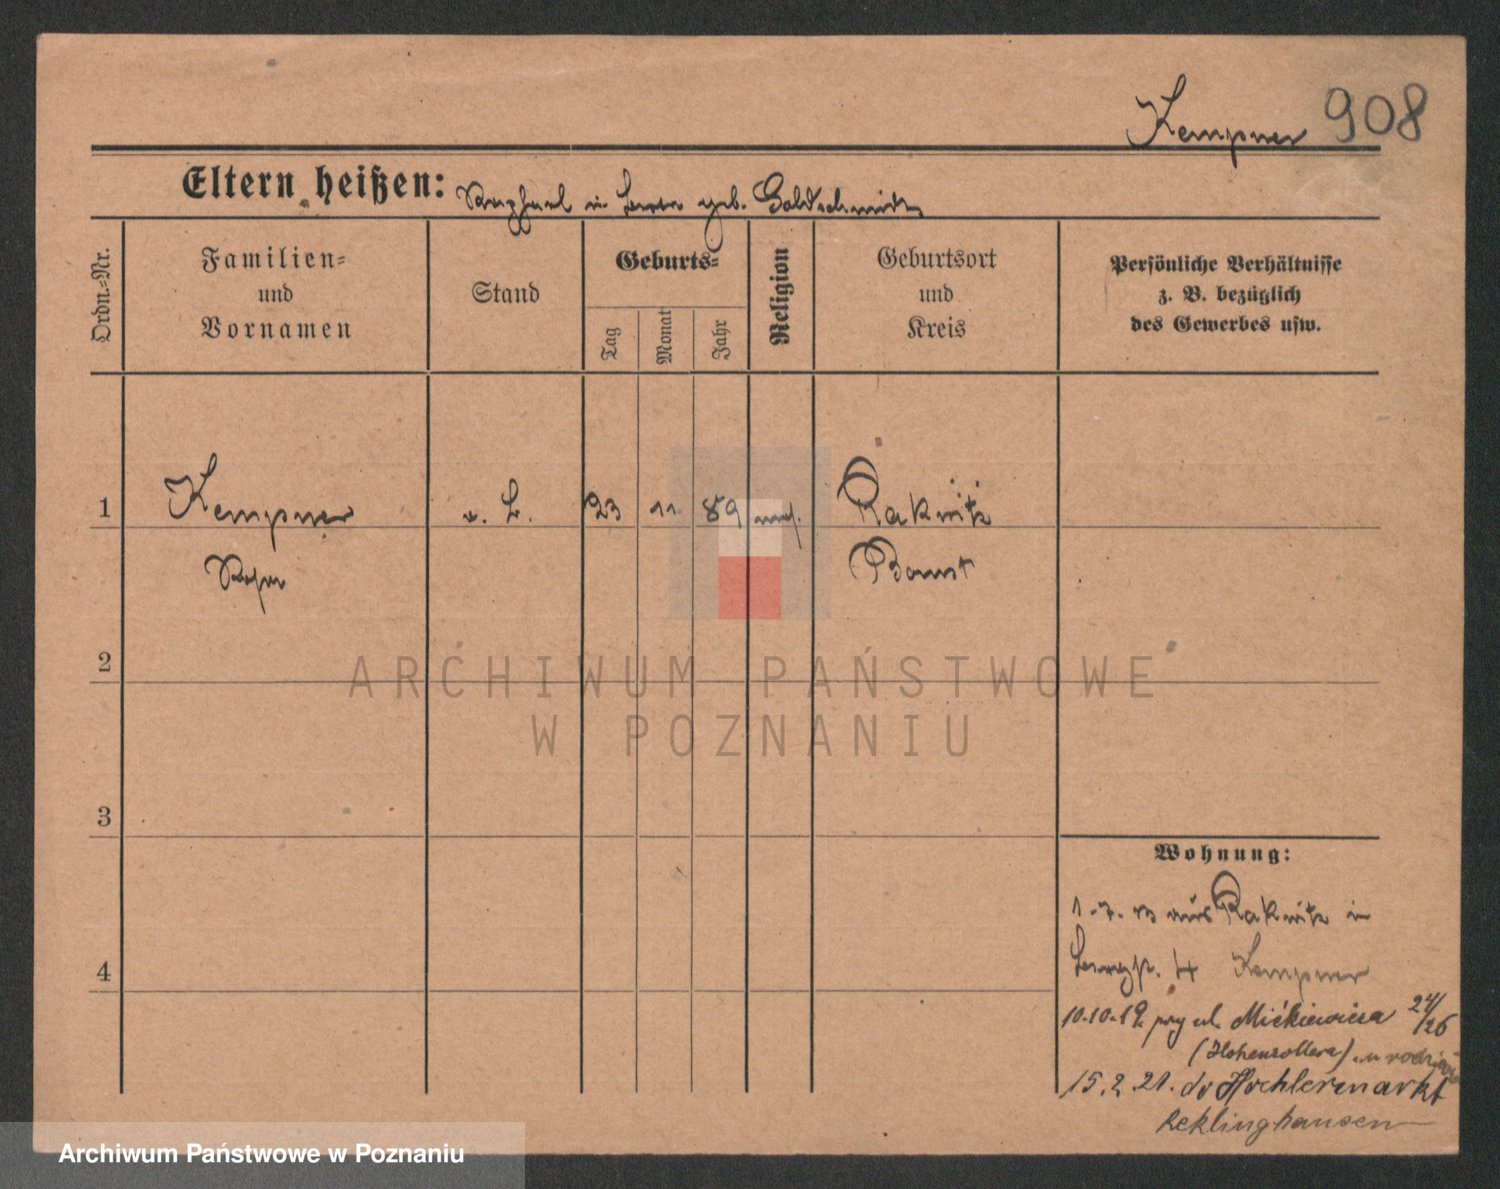 Kempner 908
Eltern heißen: Raphael u. geb. Goldschmidt
Ordn.-Nr.
Familien-
und
Vornamen
Stand
Geburts-
Tag
Monat
Jahr
Religion
Geburtsort
und
Kreis
Persönliche Verhältnisse
z. B. bezüglich
des Gewerbes usw.
1 Kempner 23 11 89 mos. Rakwitz
Bomst
2
3
4
Wohnung:
aus Rakwitz in
4 Kempner
10.10.19. przy ul. Mićkiewicza 24/26
(Hohenzollern) u rodziców
15.2.21. do Hochlermarkt
Reklinghausen
ARCHIWUM PAŃSTWOWE
W POZNANIU
Archiwum Państwowe w Poznaniu